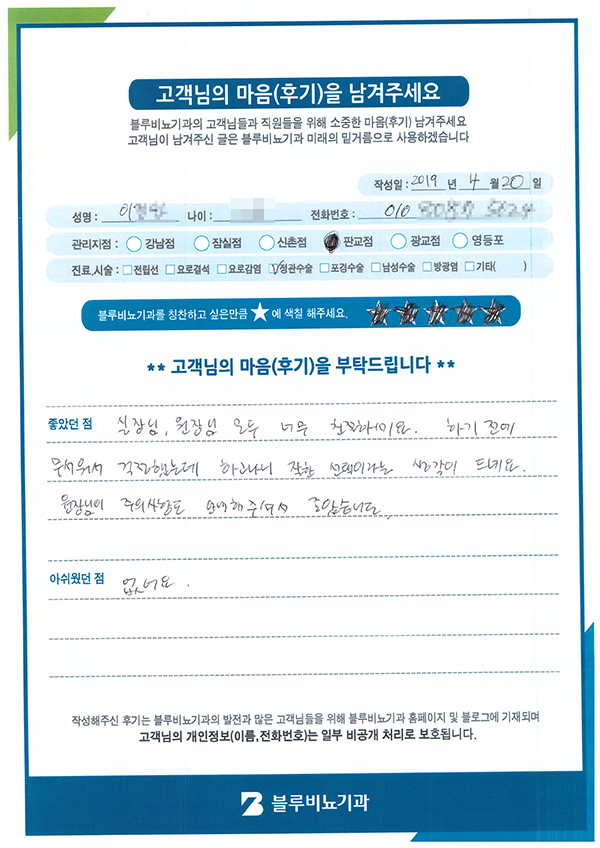 고객님의 마음(후기)을 남겨주세요
블루비뇨기과의 고객님들과 직원들을 위해 소중한 마음(후기) 남겨주세요
고객님이 남겨주신 글은 블루비뇨기과 미래의 밑거름으로 사용하겠습니다
작성일 : 2019 년 4 월 20 일
성명 : 이 나이 : 전화번호 : 010
관리지점 : 강남점 잠실점 신촌점 판교점 광교점 영등포
진료,시술 : 전립선 요로결석 요로감염 정관수술 포경수술 남성수술 방광염 기타( )
블루비뇨기과를 칭찬하고 싶은만큼 ★에 색칠 해주세요. ★★★★★
** 고객님의 마음(후기)을 부탁드립니다 **
좋았던 점 실장님, 원장님 모두 너무 친절하세요. 하기 전에
무서워서 걱정했는데 하고나니 잘한 선택이라는 생각이 드네요.
원장님이 주의사항도 안내해주셔서 좋았습니다.
아쉬웠던 점 없어요.
작성해주신 후기는 블루비뇨기과의 발전과 많은 고객님들을 위해 블루비뇨기과 홈페이지 및 블로그에 기재되며
고객님의 개인정보(이름,전화번호)는 일부 비공개 처리로 보호됩니다.
블루비뇨기과